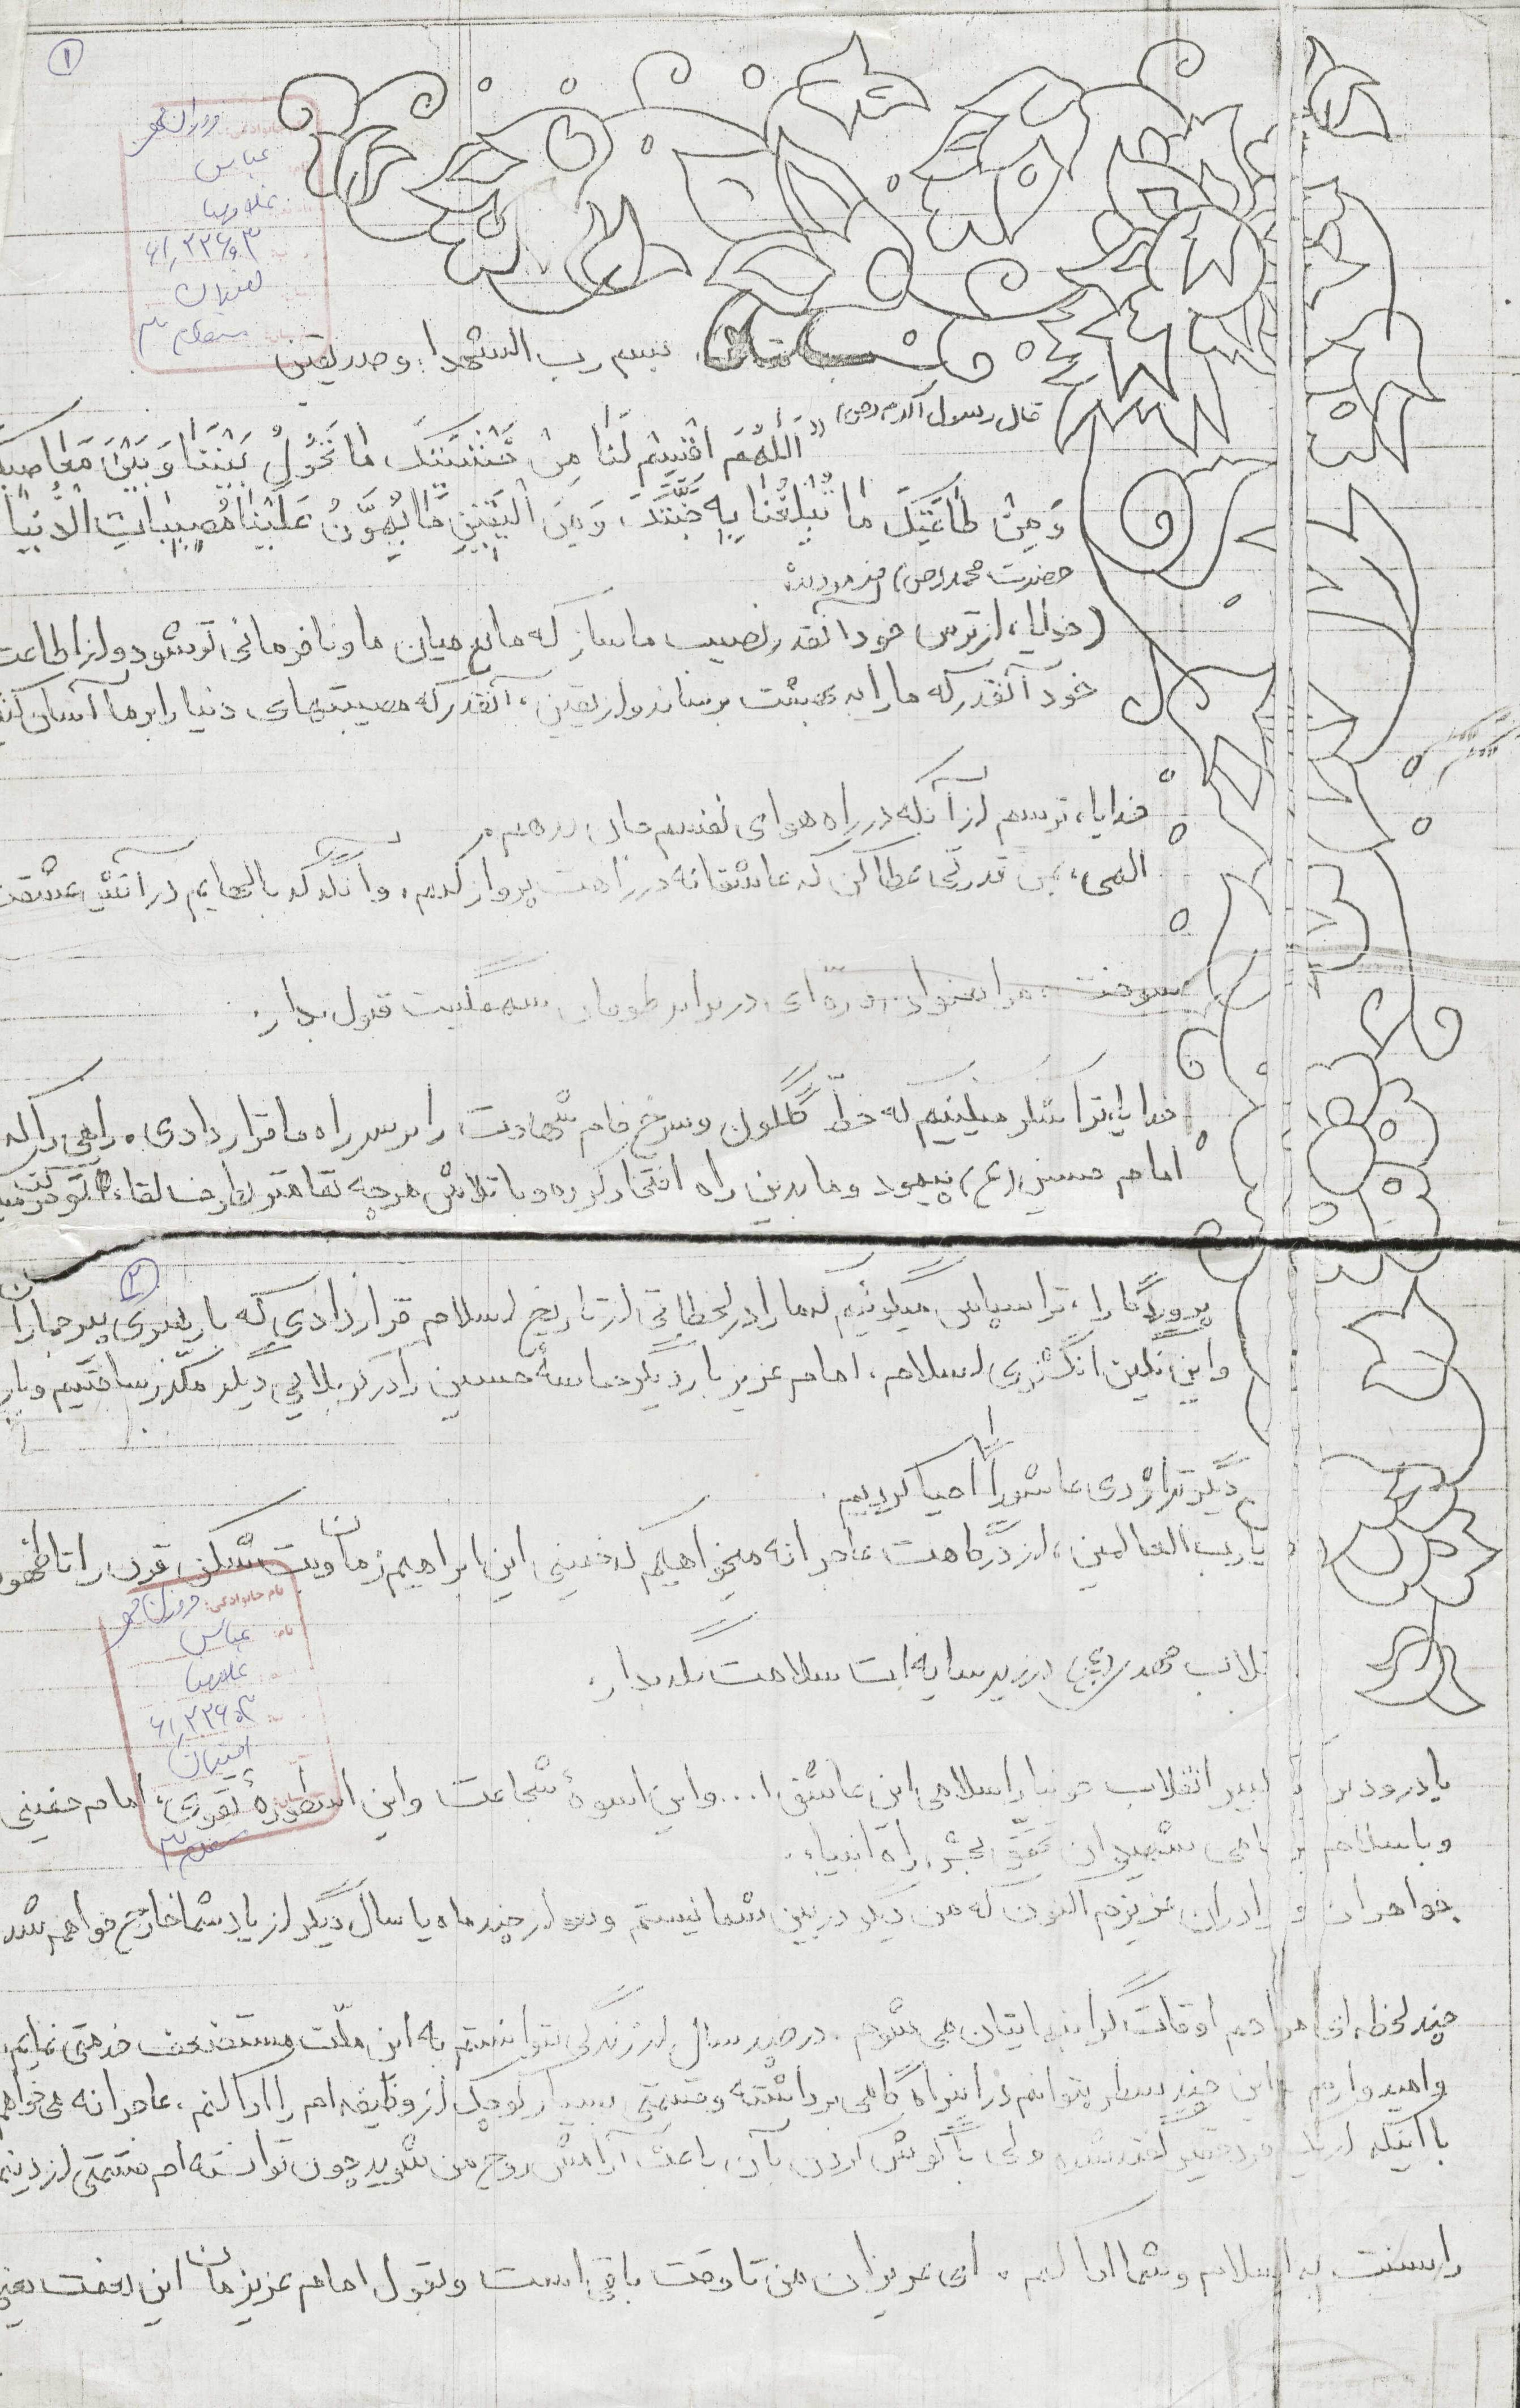 ۱
عباس
بسم رب الشهداء و صدیقین
قال رسول اکرم (ص) «
اَللّهُمَ اقْسِمْ لَنٰا مِنْ خَشْیَتِکَ مٰا یَحُولُ بَیْنَنٰا وَ بَیْنَ مَعٰاصیکَ
وَ مِنْ طٰاعَتِکَ مٰا تُبَلِّغُنٰا بِهِ جَنَّتَکَ، وَ مِنَ الیَقینِ مٰا یُهَوَّنُ عَلَیْنٰا مُصیبٰاتِ الدُّنیٰا
حضرت محمد (ص) فرمودند:
(خدایا، از ترس خود آنقدر نصیب ما ساز که مانع میان ما و نافرمانی تو شود و از اطاعت
خود آنقدر که ما را به بهشت برساند و از یقین، آنقدر که مصیبتهای دنیا را بر ما آسان کند
خدایا، ترسم از آنکه در راه هوای نفسم جان بدهم.
الهی، بمن قدرتی عطا کن که عاشقانه در راهت پرواز کنم. و آنگه که بالهایم در آتش عشقت
سوخت، مرا بعنوان ذرّه ای در برابر طوفان سهمگینت قبول بدار.
خدایا، ترا شکر میکنیم که خطّ گلگون و سرخ فام شهادت را بر سر راه ما قرار دادی. راهی را که
امام حسین (ع) پیمود و ما بدین راه افتخار کرده و با تلاش هر چه تمامتر بطرف لقاء تو
۲
پروردگارا، ترا سپاس میگوئیم که ما را در لحظاتی از تاریخ اسلام قرار دادی که با رهبری پیر جماران
و این نگین انگشتری اسلام، امام عزیز بار دیگر حماسهٔ حسین را در کربلایی دیگر مکرّر ساختیم و بار
دیگر تراژدی عاشورا را احیا کردیم.
یا رب العالمین، از درگاهت عاجزانه میخواهیم که خمینی این ابراهیم زمان و بت شکن قرن را تا ظهور
نام خانوادگی:
نام: عباس
انقلاب مهدی (عج) در زیر سایه ات سلامت نگه بدار.
با درود بر رهبر انقلاب خونبار اسلامی این عاشق ا... و این اسوهٔ شجاعت و این اسطورهٔ تقوی، امام خمینی
و با سلام بر تمامی شهیدان تحقّق بخش راه انبیاء.
خواهران و برادران عزیزم اکنون که من دیگر در بین شما نیستم و بعد از چند ماه یا سال دیگر از یاد شما خارج خواهم شد
چند لحظه ای مزاحم اوقات گرانبهایتان می شوم. در چند سال از زندگی نتوانستم به این ملّت مستضعف خدمتی نمایم،
و امیدوارم با این چند سطر بتوانم در این راه گامی برداشته و قسمتی بسیار کوچک از وظیفه ام را ادا کنم. عاجزانه می خواهم
با اینکه از یک فرد حقیر گفته شده ولی با گوش کردن بآن باعث آرامش روح من شوید چون توانسته ام قسمتی از دینم
را نسبت به اسلام و شما ادا کنم. ای عزیزان من تا وقت باقی است و بقول امام عزیزمان این نعمت یعنی